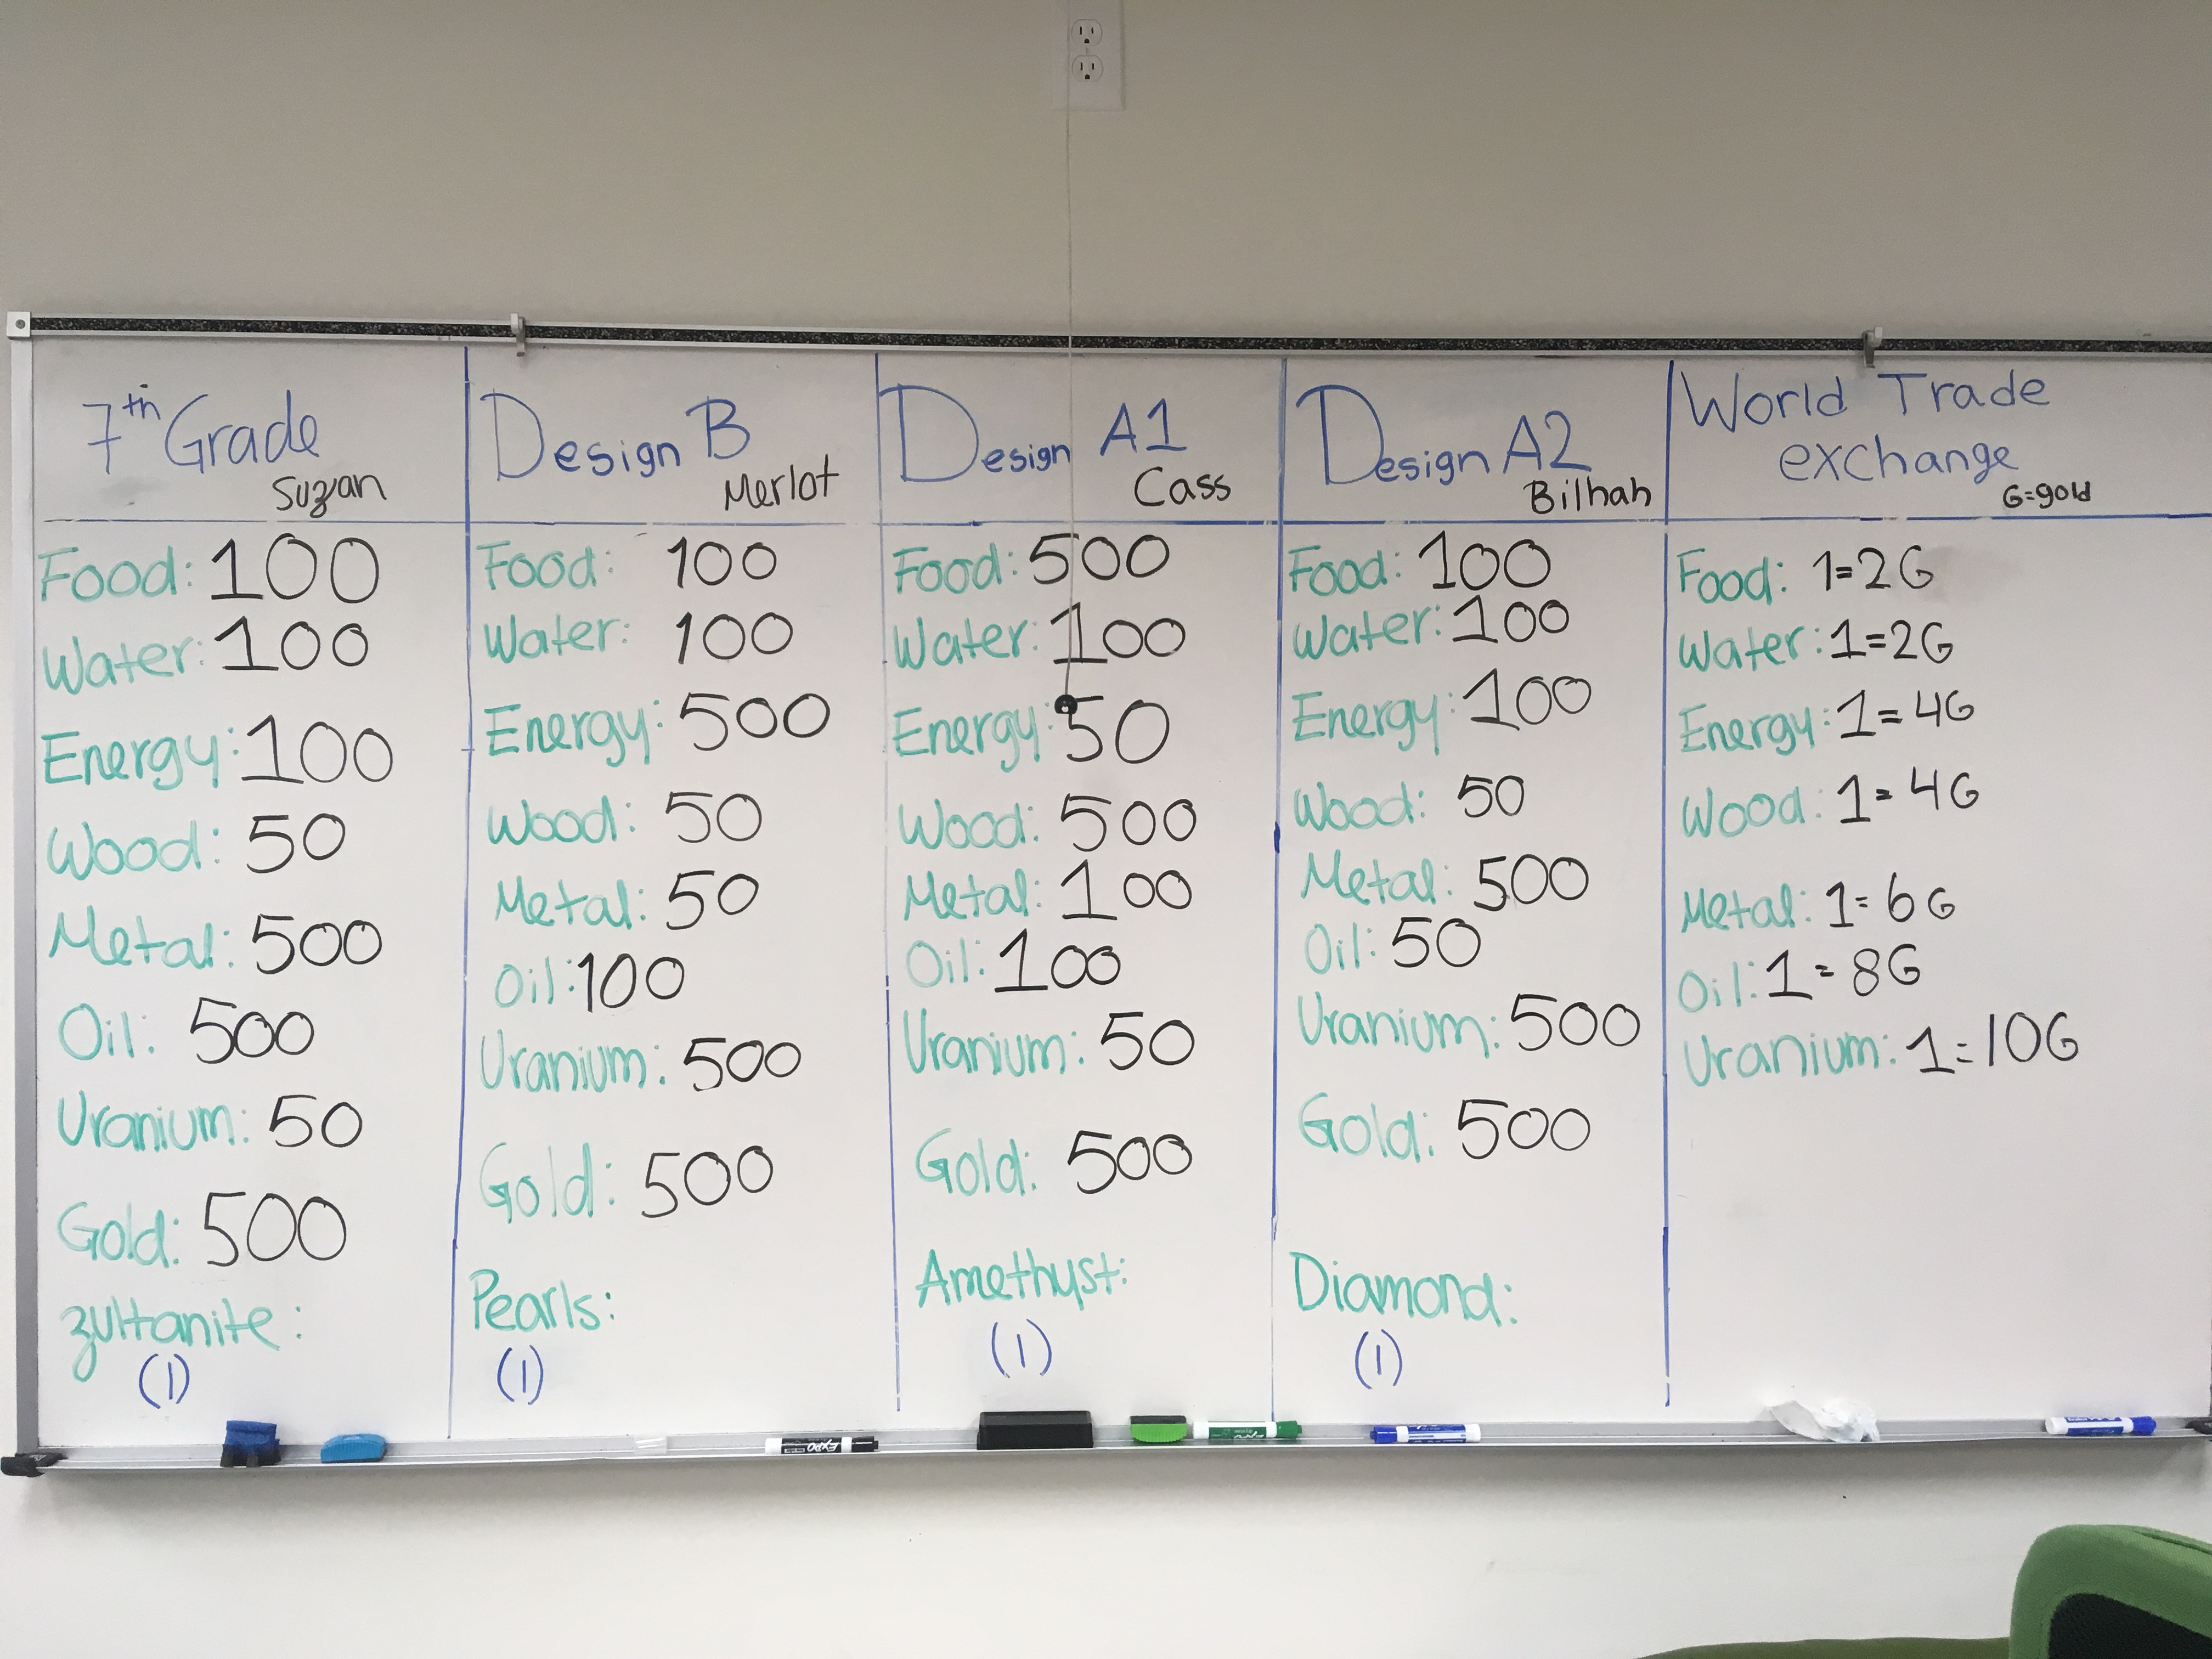 7th Grade
Suzan
Food: 100
Water: 100
Energy: 100
Wood: 50
Metal: 500
Oil: 500
Uranium: 50
Gold: 500
Zultanite:
(1)
Design B
Merlot
Food: 100
Water: 100
Energy: 500
Wood: 50
Metal: 50
Oil: 100
Uranium: 500
Gold: 500
Pearls:
(1)
Design A1
Cass
Food: 500
Water: 100
Energy: 50
Wood: 500
Metal: 100
Oil: 100
Uranium: 50
Gold: 500
Amethyst:
(1)
Design A2
Bilhah
Food: 100
Water: 100
Energy: 100
Wood: 50
Metal: 500
Oil: 50
Uranium: 500
Gold: 500
Diamond:
(1)
World Trade
exchange
G=gold
Food: 1=2G
Water: 1=2G
Energy: 1=4G
Wood: 1=4G
Metal: 1=6G
Oil: 1=8G
Uranium: 1=10G
EXPO